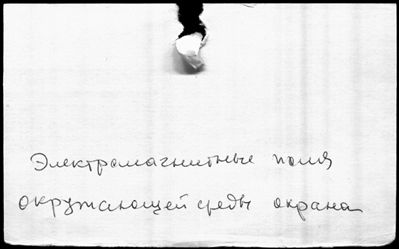 Электромагнитные поля
окружающей среды охрана